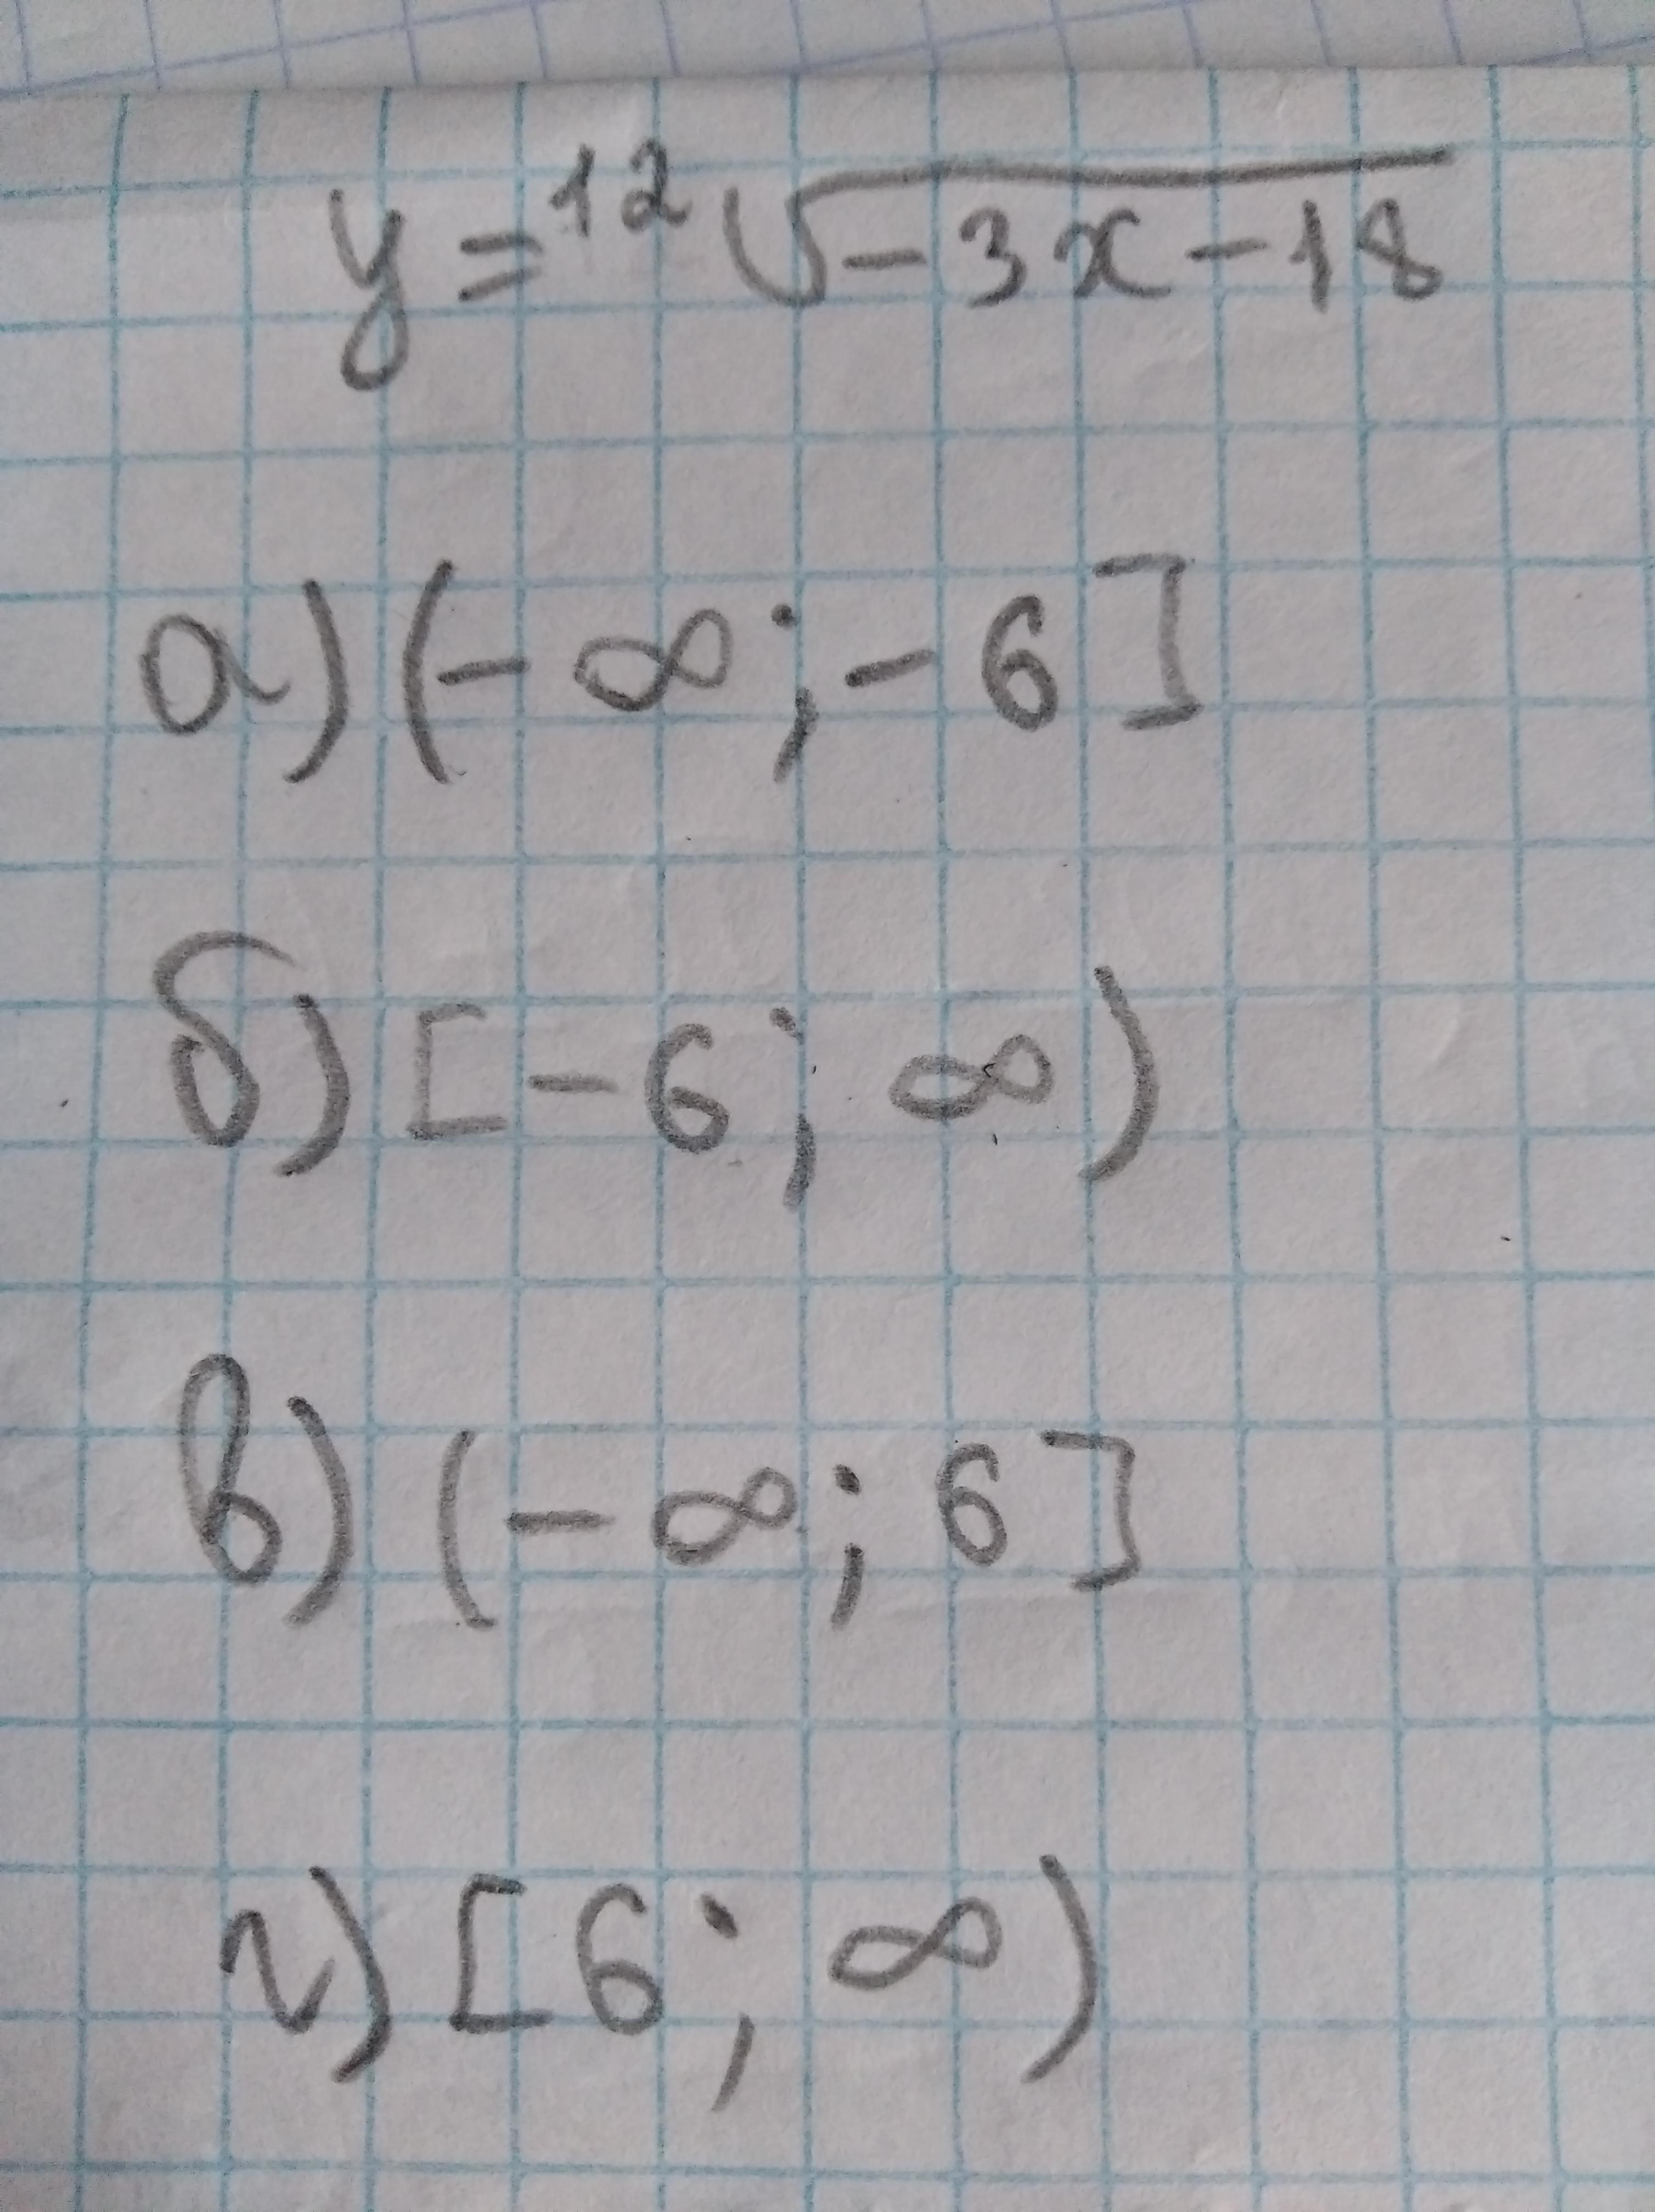 y = ¹²√-3x-18
а) (-∞; -6]
б) [-6; ∞)
в) (-∞; 6]
г) [6; ∞)